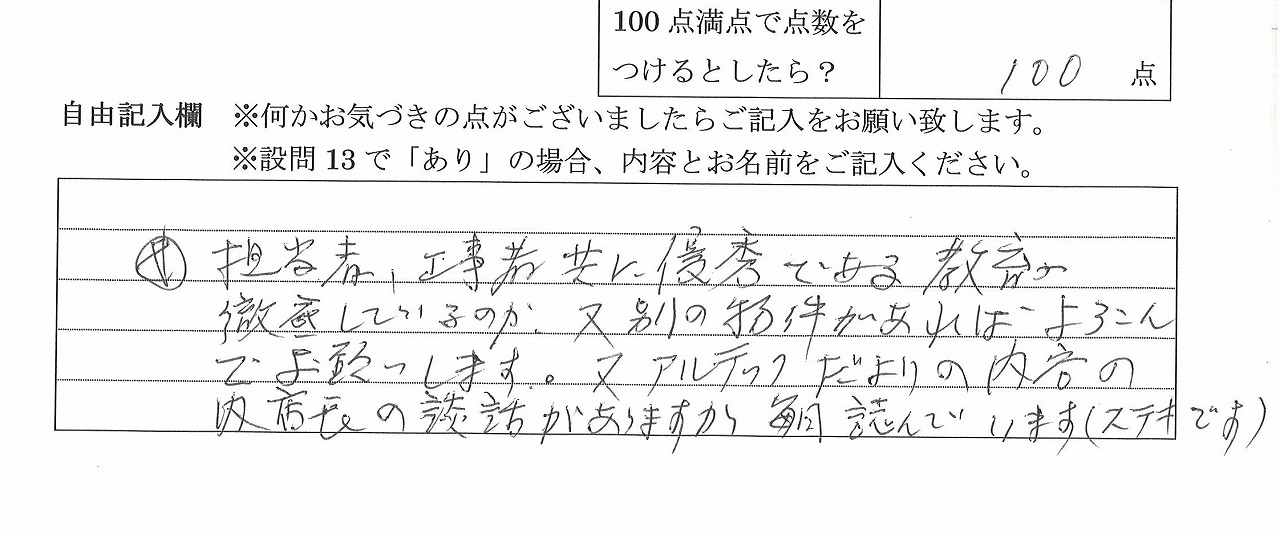 100点満点で点数を
つけるとしたら？
100 点
自由記入欄 ※何かお気づきの点がございましたらご記入をお願い致します。
※設問13で「あり」の場合、内容とお名前をご記入ください。
担当者、工事者共に優秀である 教育が
徹底しているのか、又別の物件があれば よろこん
でお願いします。又アルテックだよりの内容の
内店長の談話がありますから 毎日 読んでいます(ステキです)